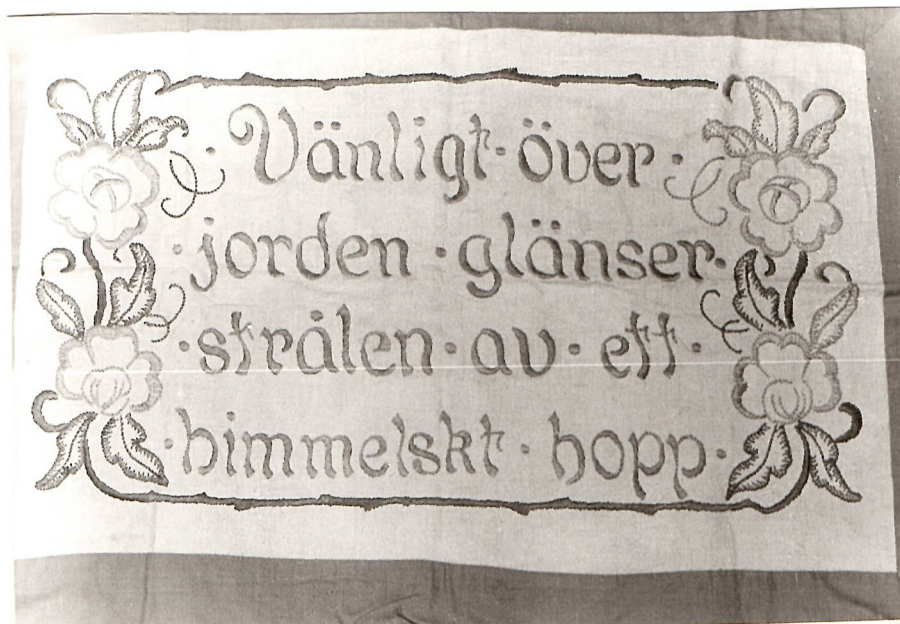 · Vänligt · över ·
· jorden · glänser ·
· strålen · av · ett ·
· himmelskt · hopp ·